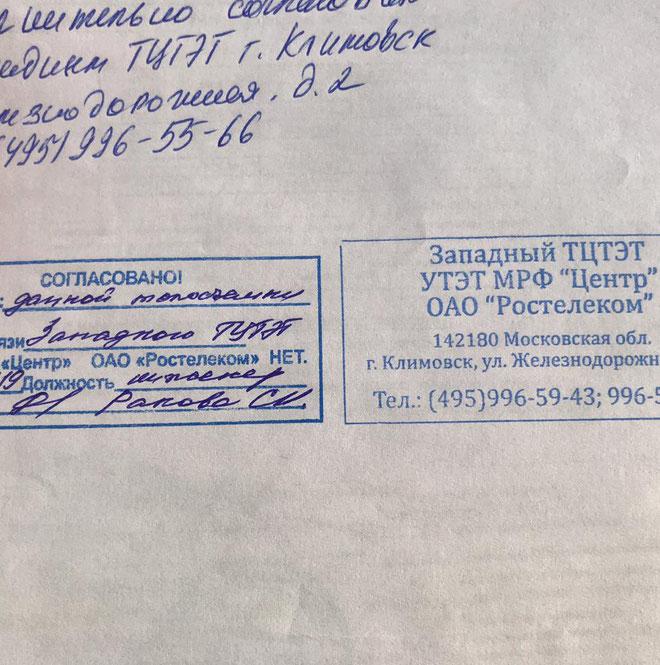 г. Климовск
д. 2
(495) 996-55-66
СОГЛАСОВАНО!
данной топосъемки
Западного ТЦТЭТ
«Центр» ОАО «Ростелеком» НЕТ.
19 Должность инженер
Ракова С.И.
Западный ТЦТЭТ
УТЭТ МРФ "Центр"
ОАО "Ростелеком"
142180 Московская обл.
г. Климовск, ул. Железнодорожн
Тел.: (495)996-59-43; 996-5